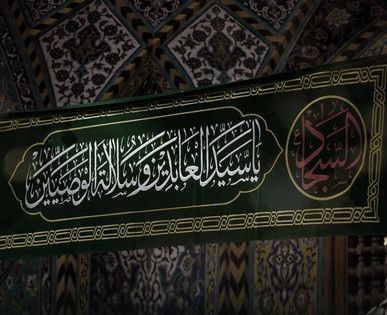 السجاد
يا سيد العابدين و سلالة الوصيين